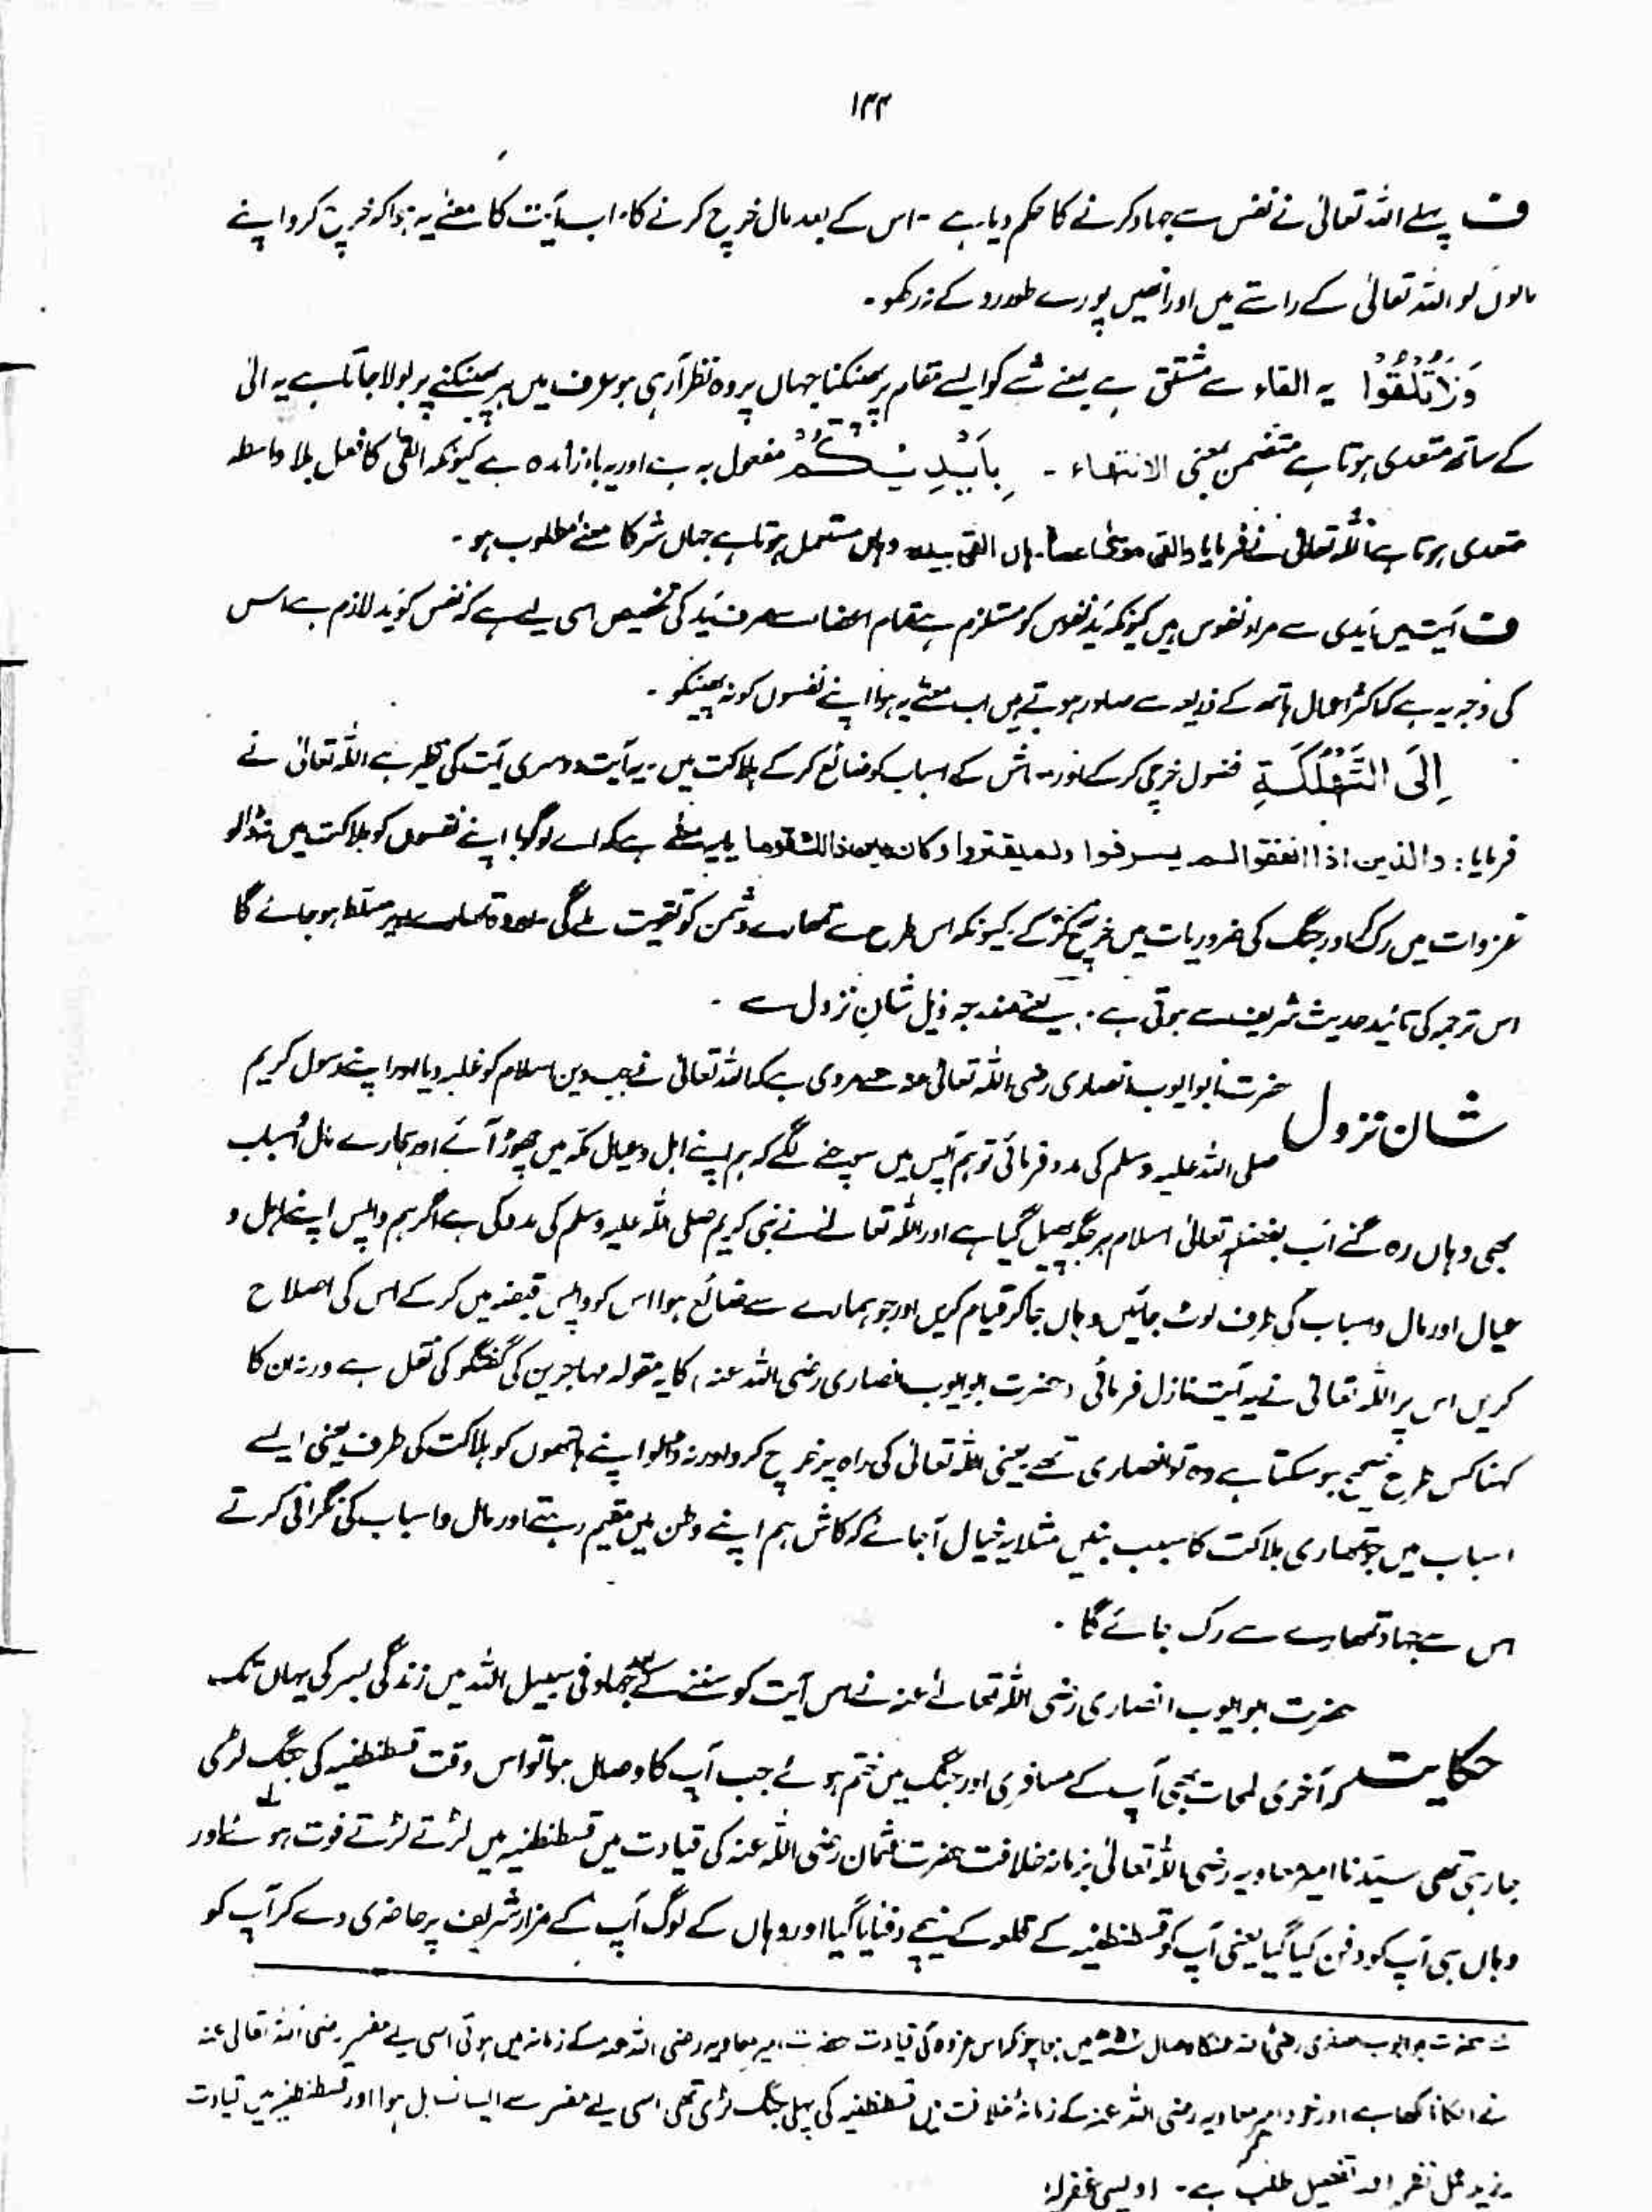 ۱۴۴
ف پہلے اللہ تعالیٰ نے نفس سے جہاد کرنے کا حکم دیا ہے ۔ اس کے بعد مال خرچ کرنے کا۔ اب آیت کا معنے یہ ہوا کہ خرچ کرو اپنے
مالوں کو اللہ تعالیٰ کے راستے میں اور انھیں پورے طور روکے نہ رکھو ۔
وَلَا تُلْقُوْا یہ القاء سے مشتق ہے بمعنے شے کو ایسے مقام پر پھینکنا جہاں پر وہ نظر آ رہی ہو عرف میں ہر پھینکنے پر بولا جاتا ہے یہ الیٰ
کے ساتھ متعدی ہوتا ہے متضمن بمعنی الانتہاء ۔ بِاَیْدِیْکُمْ مفعول بہ ہے اور یہ باء زائدہ ہے کیونکہ القیٰ کا فعل بلا واسطہ
متعدی ہوتا ہے اللہ تعالیٰ نے فرمایا والقی موسیٰ عصاہ ہاں القیٰ بیدہ وہاں مستعمل ہوتا ہے جہاں شر کا معنے مطلوب ہو ۔
ف آیت میں اَیدی سے مراد نفوس ہیں کیونکہ یَد نفوس کو مستلزم ہے تمام اعضاء سے صرف یَد کی تخصیص اسی لیے ہے کہ نفس کو یَد لازم ہے اس
کی وجہ یہ ہے کہ اکثر اعمال ہاتھ کے ذریعہ سے صادر ہوتے ہیں اب معنے یہ ہوا اپنے نفسوں کو نہ پھینکو ۔
اِلَی التَّهْلُكَةِ فضول خرچی کر کے اور معاش کے اسباب کو ضائع کر کے ہلاکت میں ۔ یہ آیت دوسری آیت کی نظیر ہے اللہ تعالیٰ نے
فرمایا : والذین اذا انفقوا لم یسرفوا ولم یقتروا وکان بین ذالک قواما یا یہ معنے ہے کہ اے لوگو! اپنے نفسوں کو ہلاکت میں نہ ڈالو
غزوات میں رک کر اور جنگ کی ضروریات میں خرچ نہ کر کے کیونکہ اس طرح سے تمھارے دشمن کو تقویت ملے گی اور وہ تمھارے اوپر مسلط ہو جائے گا
اس ترجمہ کی تائید حدیث شریف سے ہوتی ہے ۔ یعنے مندرجہ ذیل شانِ نزول سے ۔
شان نزول حضرت ابو ایوب انصاری رضی اللہ تعالیٰ عنہ سے مروی ہے کہ اللہ تعالیٰ نے جب دین اسلام کو غلبہ دیا اور اپنے رسول کریم
صلی اللہ علیہ وسلم کی مدد فرمائی تو ہم آپس میں سوچنے لگے کہ ہم اپنے اہل و عیال مکہ میں چھوڑ آئے اور ہمارے مال اسباب
بھی وہاں رہ گئے اب بفضلہٖ تعالیٰ اسلام ہر جگہ پھیل گیا ہے اور اللہ تعالےٰ نے نبی کریم صلی اللہ علیہ وسلم کی مدد کی ہے اگر ہم واپس اپنے اہل و
عیال اور مال و اسباب کی طرف لوٹ جائیں وہاں جا کر قیام کریں اور جو ہمارے سے ضائع ہوا اس کو واپس قبضہ میں کر کے اس کی اصلاح
کریں اس پر اللہ تعالیٰ نے یہ آیت نازل فرمائی (حضرت ابو ایوب انصاری رضی اللہ عنہ) کا یہ مقولہ مہاجرین کی گفتگو کی نقل ہے ورنہ ان کا
کہنا کس طرح صحیح ہو سکتا ہے وہ تو انصاری تھے یعنی اللہ تعالیٰ کی راہ پر خرچ کرو اور نہ ڈالو اپنے ہاتھوں کو ہلاکت کی طرف یعنی ایسے
اسباب میں جو تمھاری ہلاکت کا سبب بنیں مثلاً یہ خیال آ جائے کہ کاش ہم اپنے وطن میں مقیم رہتے اور مال و اسباب کی نگرانی کرتے
اس سے جہاد تمھارے سے رک جائے گا ۔
حضرت ابو ایوب انصاری رضی اللہ تعالےٰ عنہ نے اس آیت کو سننے کے بعد جہاد فی سبیل اللہ میں زندگی بسر کی یہاں تک
حکایت کہ آخری لمحات بھی آپ کے مسافری اور جنگ میں ختم ہوئے جب آپ کا وصال ہوا تو اس وقت قسطنطنیہ کی جنگ لڑی
جا رہی تھی سیّدنا امیر معاویہ رضی اللہ تعالیٰ بزمانہ خلافت حضرت عثمان رضی اللہ عنہ کی قیادت میں قسطنطنیہ میں لڑتے لڑتے فوت ہوئے اور
وہاں ہی آپ کو دفن کیا گیا یعنی آپ کو قسطنطنیہ کے قلعہ کے نیچے دفنایا گیا اور وہاں کے لوگ آپ کے مزار شریف پر حاضری دے کر آپ کو
حضرت ابو ایوب انصاری رضی اللہ عنہ کا وصال میں ہوا چونکہ اس غزوہ کی قیادت حضرت امیر معاویہ رضی اللہ عنہ کے زمانہ میں ہوئی اسی لیے مفسر رضی اللہ تعالیٰ عنہ
نے ان کا نام لکھا ہے اور خود امیر معاویہ رضی اللہ عنہ کے زمانۂ خلافت میں قسطنطنیہ کی پہلی جنگ لڑی تھی اسی لیے مفسر سے ایسا تساہل ہوا اور قسطنطنیہ میں قیادت
یزید محل نظر اور تفصیل طلب ہے ۔ اویسی غفرلہٗ